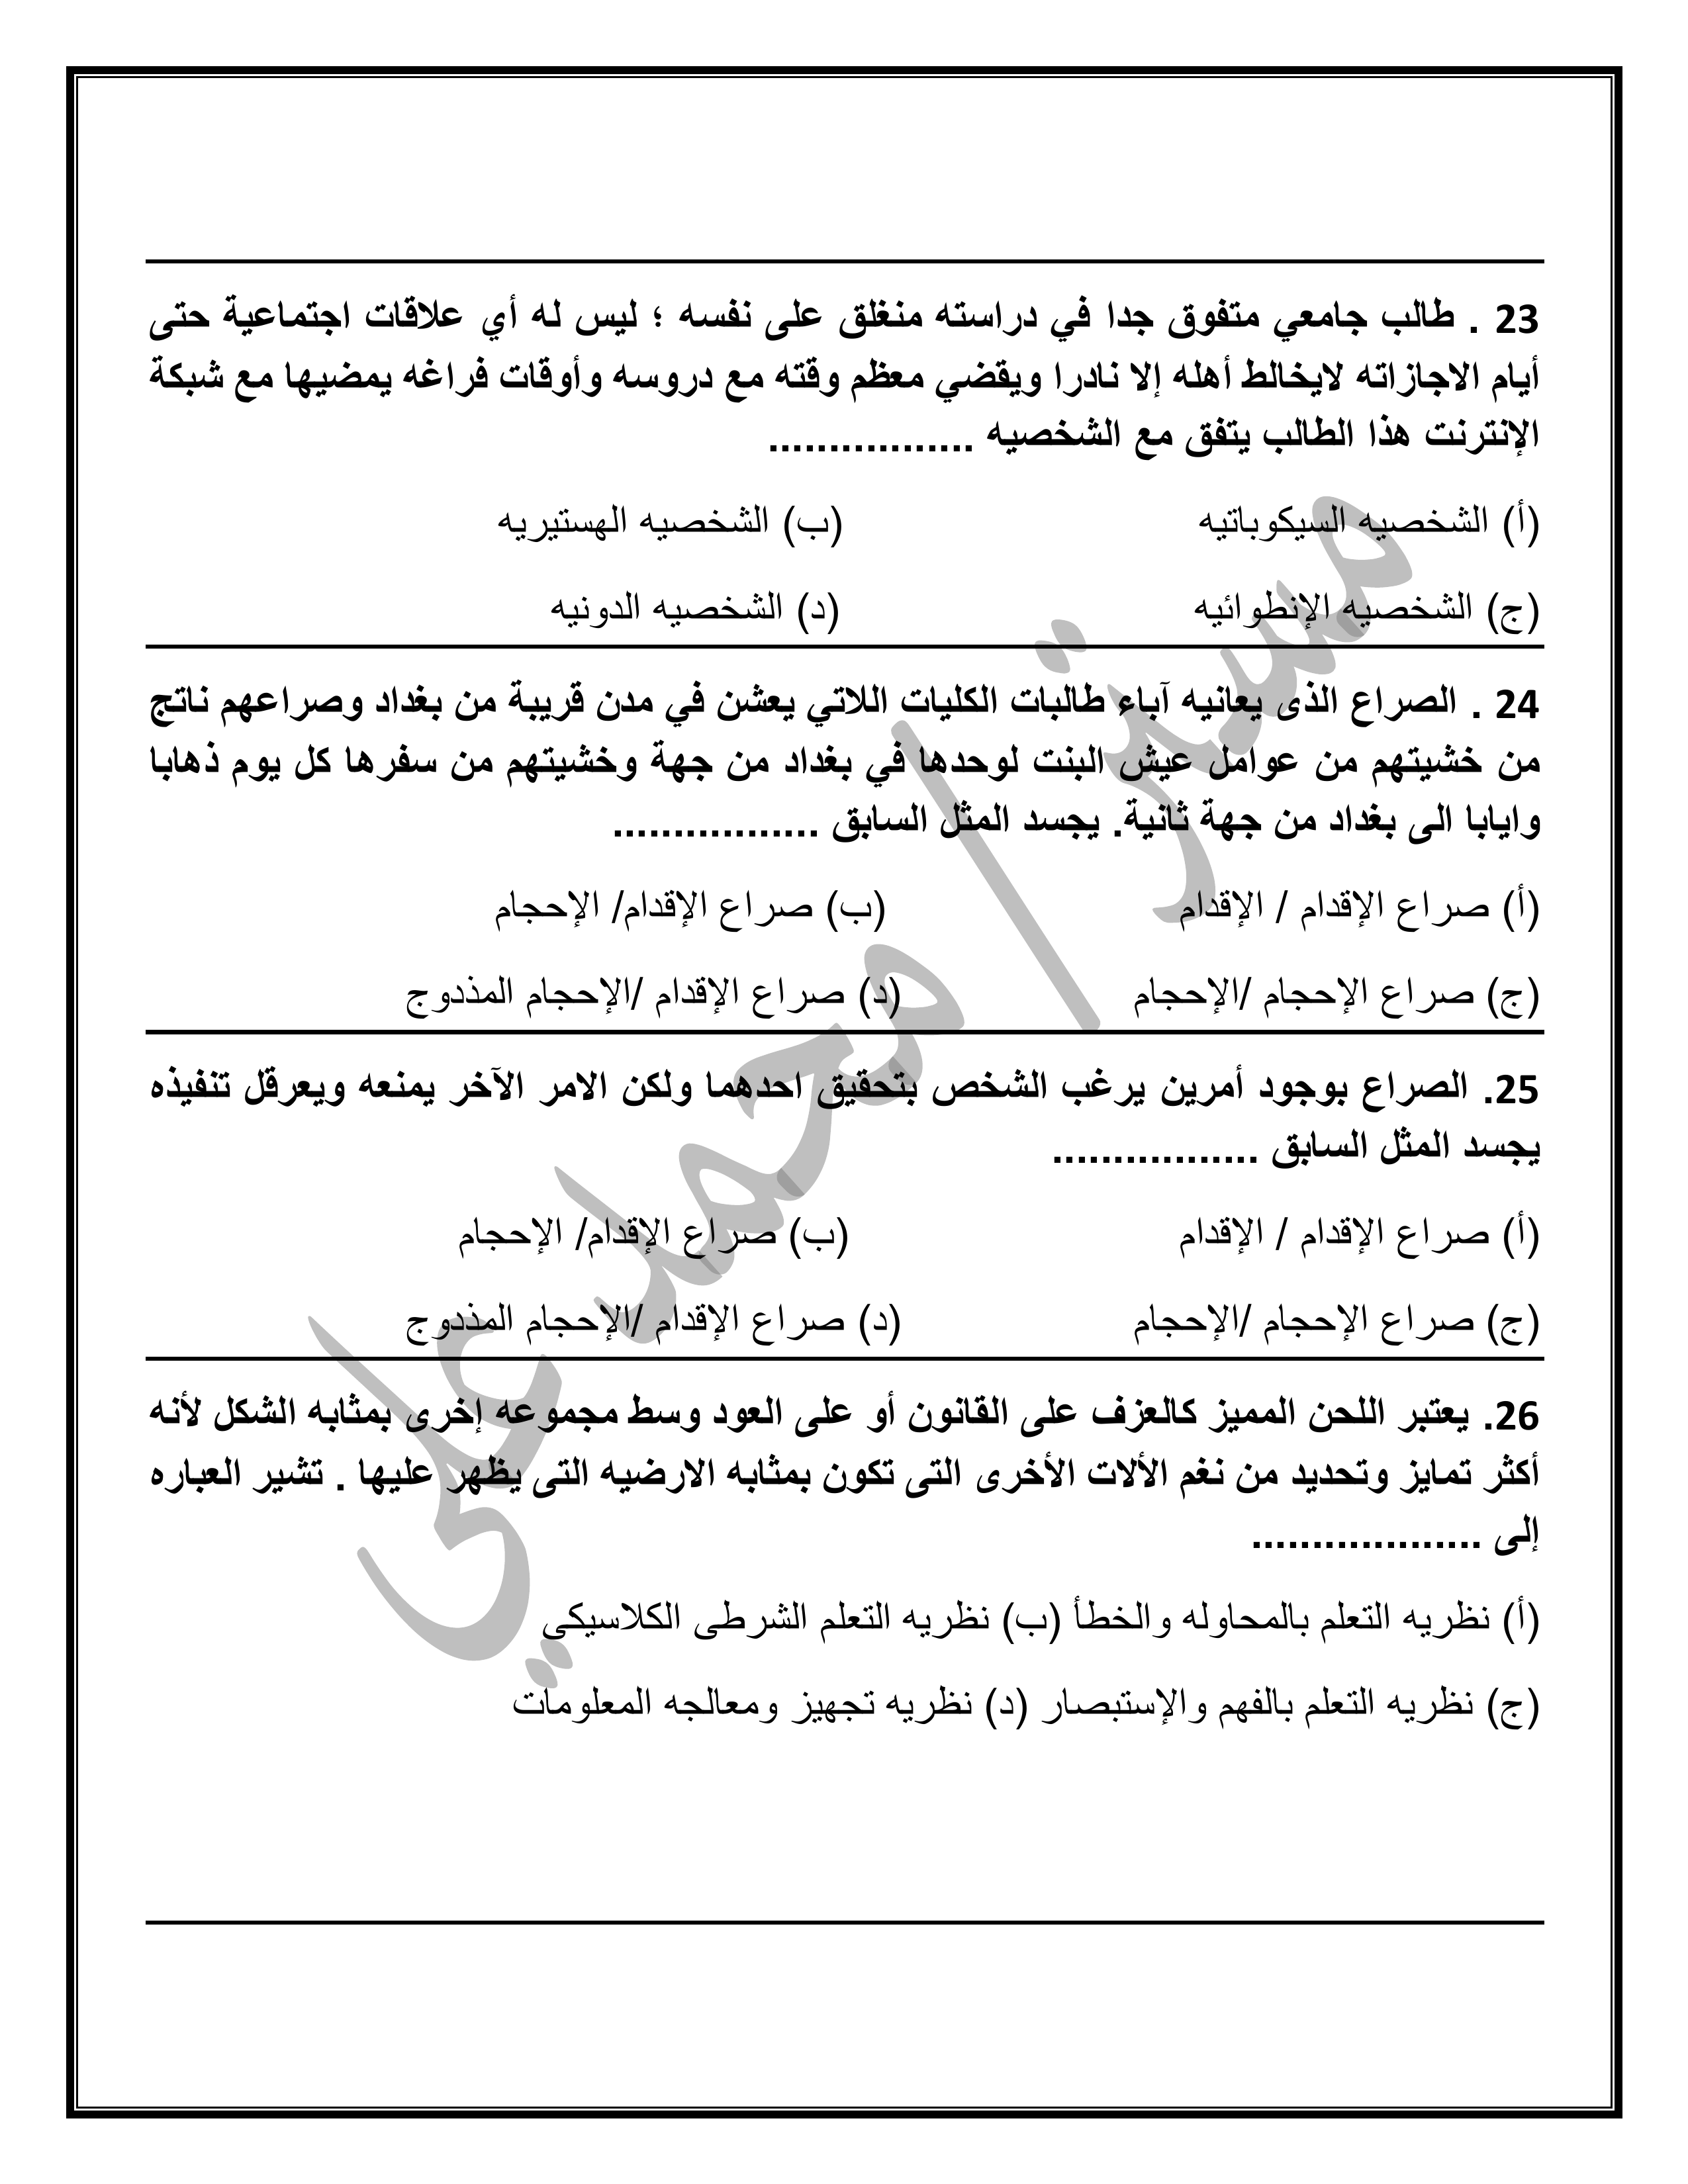 23 . طالب جامعي متفوق جدا في دراسته منغلق على نفسه ؛ ليس له أي علاقات اجتماعية حتى
أيام الاجازاته لايخالط أهله إلا نادرا ويقضي معظم وقته مع دروسه وأوقات فراغه يمضيها مع شبكة
الإنترنت هذا الطالب يتفق مع الشخصيه .................
(أ) الشخصيه السيكوباتيه (ب) الشخصيه الهستيريه
(ج) الشخصيه الإنطوائيه (د) الشخصيه الدونيه
24 . الصراع الذى يعانيه آباء طالبات الكليات اللاتي يعشن في مدن قريبة من بغداد وصراعهم ناتج
من خشيتهم من عوامل عيش البنت لوحدها في بغداد من جهة وخشيتهم من سفرها كل يوم ذهابا
وايابا الى بغداد من جهة ثانية. يجسد المثل السابق .................
(أ) صراع الإقدام / الإقدام (ب) صراع الإقدام/ الإحجام
(ج) صراع الإحجام /الإحجام (د) صراع الإقدام /الإحجام المذدوج
25. الصراع بوجود أمرين يرغب الشخص بتحقيق احدهما ولكن الامر الآخر يمنعه ويعرقل تنفيذه
يجسد المثل السابق .................
(أ) صراع الإقدام / الإقدام (ب) صراع الإقدام/ الإحجام
(ج) صراع الإحجام /الإحجام (د) صراع الإقدام /الإحجام المذدوج
26. يعتبر اللحن المميز كالعزف على القانون أو على العود وسط مجموعه إخرى بمثابه الشكل لأنه
أكثر تمايز وتحديد من نغم الألات الأخرى التى تكون بمثابه الارضيه التى يظهر عليها . تشير العباره
إلى ...................
(أ) نظريه التعلم بالمحاوله والخطأ (ب) نظريه التعلم الشرطى الكلاسيكي
(ج) نظريه التعلم بالفهم والإستبصار (د) نظريه تجهيز ومعالجه المعلومات
مستر/ محمد علي